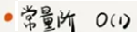 常量阶 O(1)